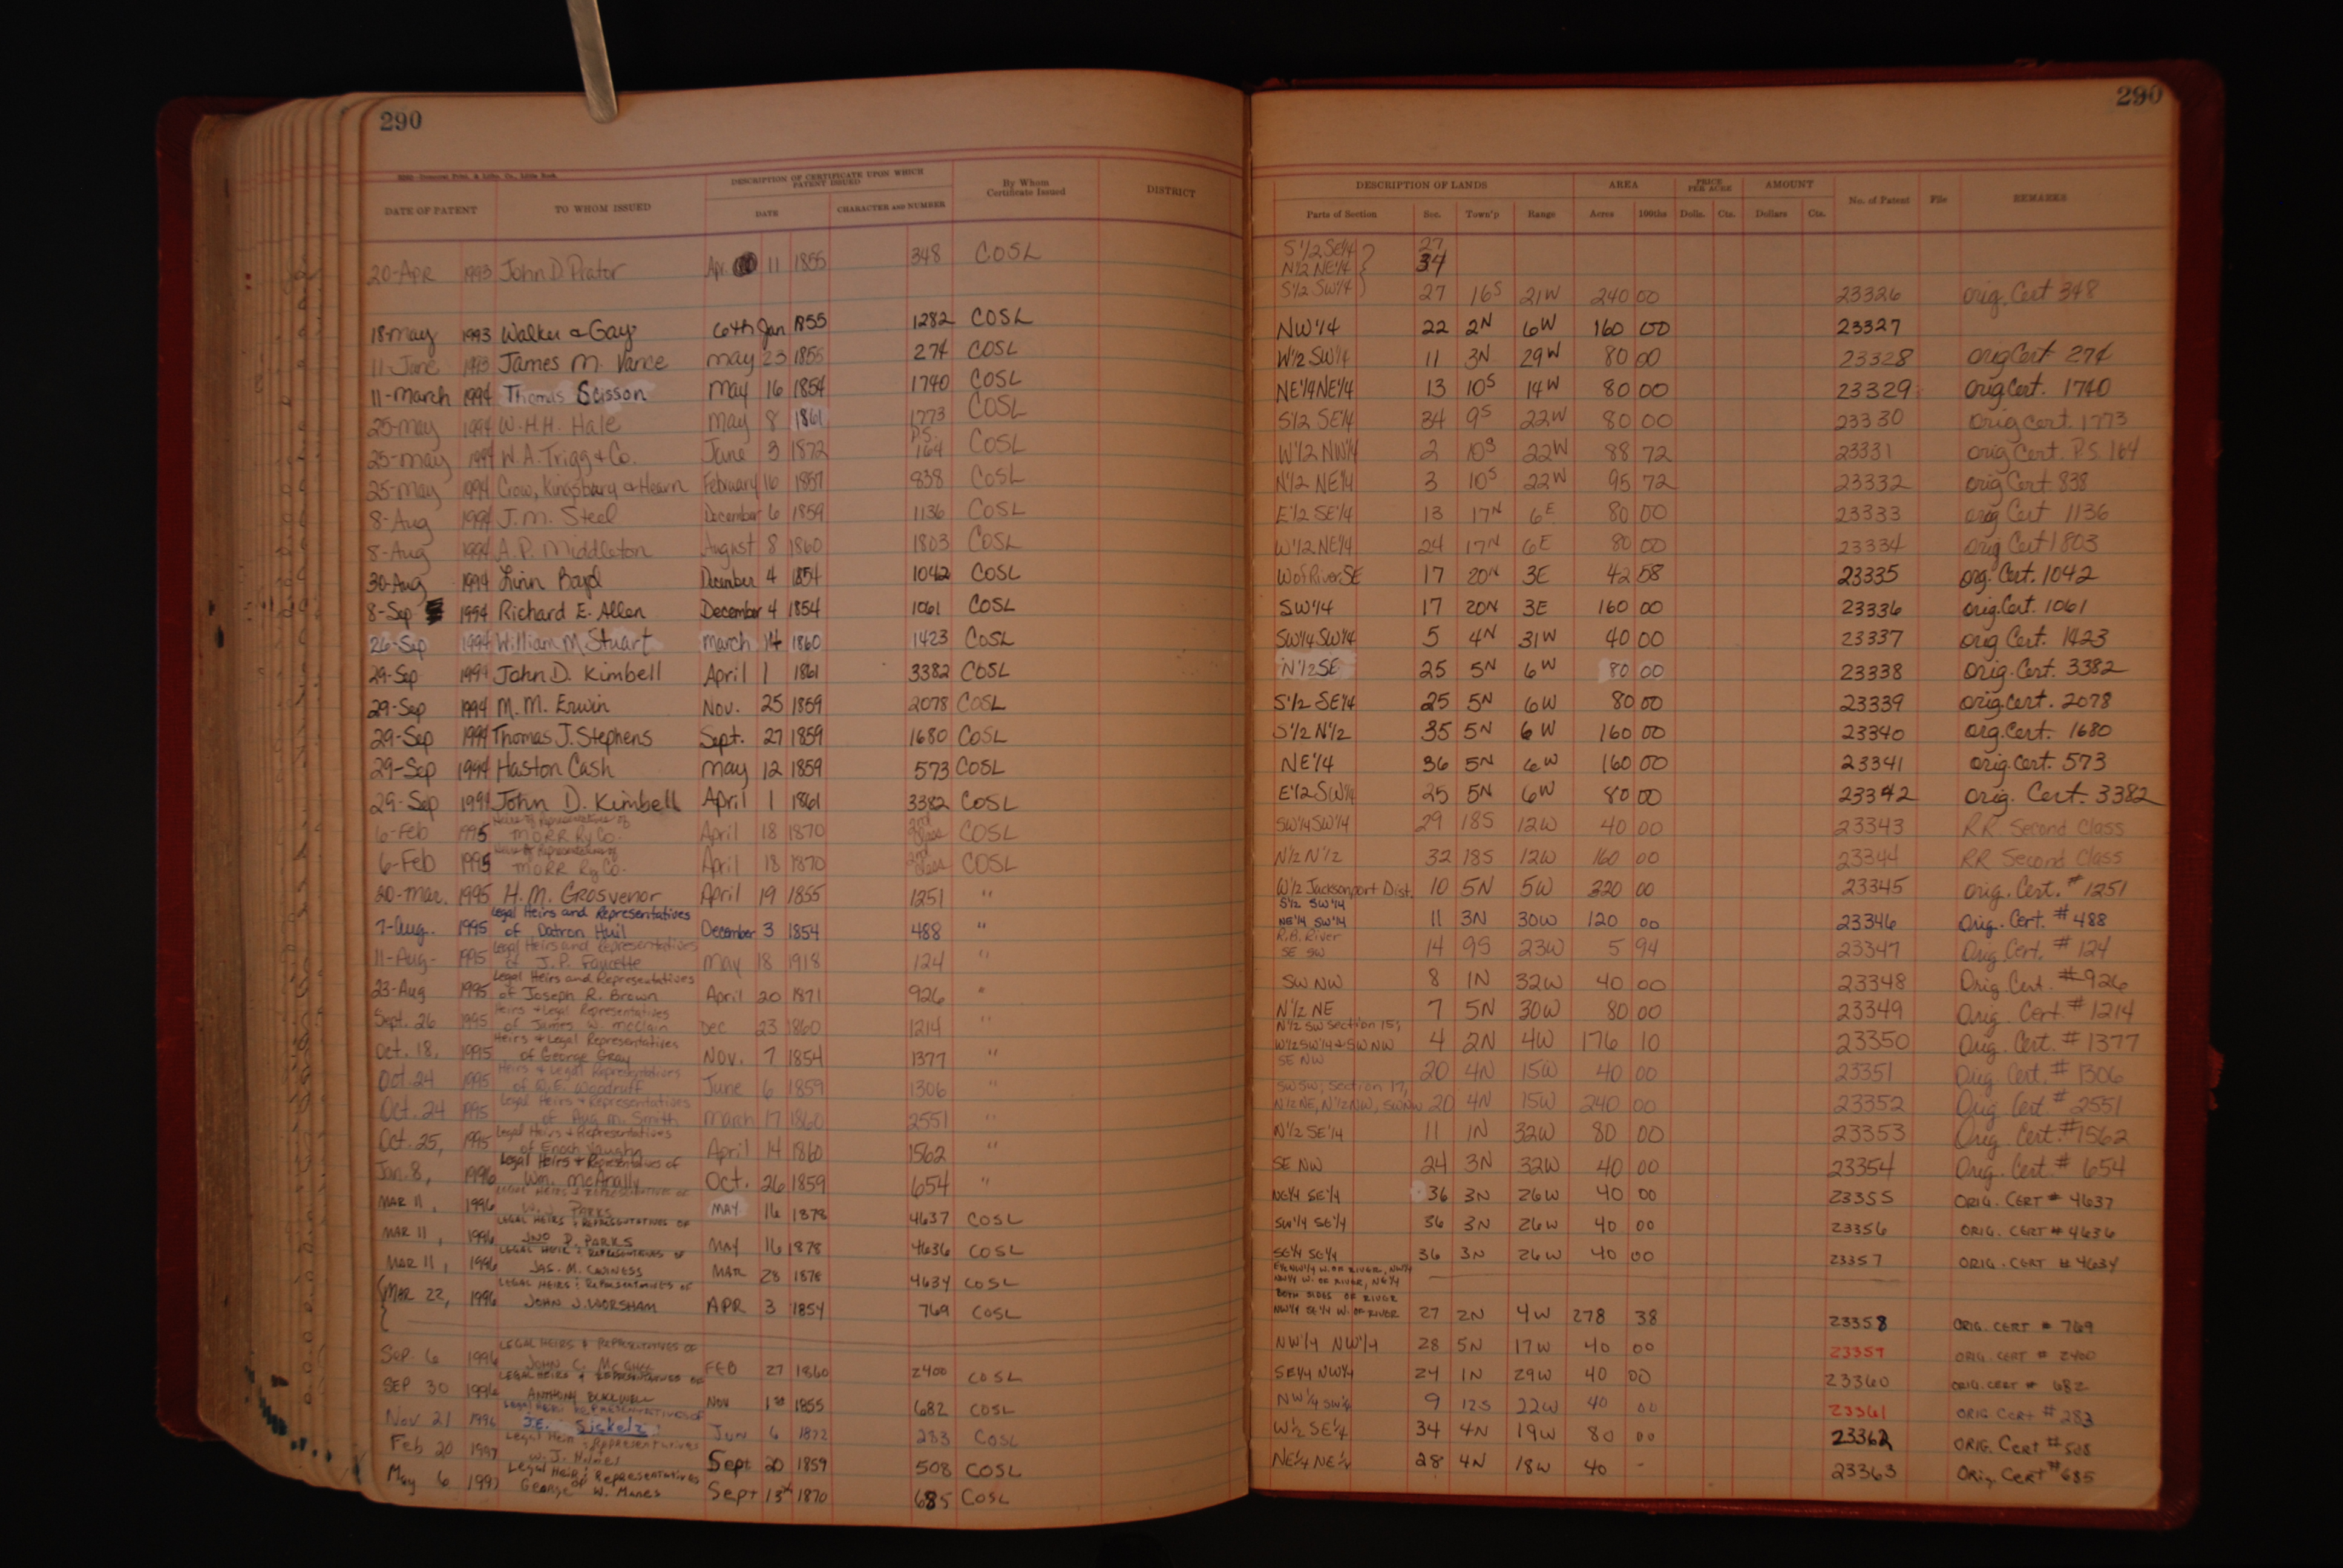 290
290
DATE OF PATENT TO WHOM ISSUED DESCRIPTION OF CERTIFICATE UPON WHICH PATENT ISSUED DATE CHARACTER AND NUMBER By Whom Certificate Issued DISTRICT
DESCRIPTION OF LANDS AREA PRICE PER ACRE AMOUNT No. of Patent File REMARKS
Parts of Section Sec. Town'p Range Acres 100ths Dolls. Cts. Dollars Cts.
S 1/2 SE 1/4 27
N 1/2 NE 1/4 34
20-Apr 1993 John D. Prator Apr. 11 1855 348 COSL S 1/2 SW 1/4 27 16S 21W 240 00 23326 orig. Cert 348
18-May 1993 Walker & Gay 6th Jan 1855 1282 COSL NW 1/4 22 2N 6W 160 00 23327
11-June 1993 James M. Vance May 23 1855 274 COSL W 1/2 SW 1/4 11 3N 29W 80 00 23328 orig Cert 274
11-March 1994 Thomas Scisson May 16 1854 1740 COSL NE 1/4 NE 1/4 13 10S 14W 80 00 23329 orig Cert. 1740
25-May 1994 W.H.H. Hale May 8 1861 1773 COSL S 1/2 SE 1/4 34 9S 22W 80 00 23330 orig cert. 1773
25-May 1994 W.A. Trigg & Co. June 3 1872 P.S. 164 COSL W 1/2 NW 1/4 2 10S 22W 88 72 23331 orig Cert. P.S. 164
25-May 1994 Crow, Kingsbury & Hearn February 16 1857 838 COSL N 1/2 NE 1/4 3 10S 22W 95 72 23332 orig Cert 838
8-Aug 1994 J.M. Steel December 6 1859 1136 COSL E 1/2 SE 1/4 13 17N 6E 80 00 23333 orig Cert 1136
8-Aug 1994 A.P. Middleton August 8 1860 1803 COSL W 1/2 NE 1/4 24 17N 6E 80 00 23334 orig Cert 1803
30-Aug 1994 Linn Boyd December 4 1854 1042 COSL W of River SE 17 20N 3E 42 58 23335 org. Cert. 1042
8-Sep 1994 Richard E. Allen December 4 1854 1061 COSL SW 1/4 17 20N 3E 160 00 23336 orig. Cert. 1061
26-Sep 1994 William M. Stuart March 14 1860 1423 COSL SW 1/4 SW 1/4 5 4N 31W 40 00 23337 orig Cert. 1423
29-Sep 1994 John D. Kimbell April 1 1861 3382 COSL N 1/2 SE 25 5N 6W 80 00 23338 orig. Cert. 3382
29-Sep 1994 M.M. Erwin Nov. 25 1859 2078 COSL S 1/2 SE 1/4 25 5N 6W 80 00 23339 orig cert. 2078
29-Sep 1994 Thomas J. Stephens Sept. 27 1859 1680 COSL S 1/2 N 1/2 35 5N 6W 160 00 23340 orig. Cert. 1680
29-Sep 1994 Haston Cash May 12 1859 573 COSL NE 1/4 36 5N 6W 160 00 23341 orig. cert. 573
29-Sep 1994 John D. Kimbell April 1 1861 3382 COSL E 1/2 SW 1/4 25 5N 6W 80 00 23342 orig. Cert. 3382
6-Feb 1995 Heirs & Representatives of MORR Ry Co. April 18 1870 2nd Class COSL SW 1/4 SW 1/4 29 18S 12W 40 00 23343 RR Second Class
6-Feb 1995 Heirs & Representatives of MORR Ry Co. April 18 1870 2nd Class COSL N 1/2 N 1/2 32 18S 12W 160 00 23344 RR Second Class
20-Mar. 1995 H.M. Grosvenor April 19 1855 1251 " W 1/2 Jacksonport Dist. 10 5N 5W 320 00 23345 orig. Cert. # 1251
7-Aug. 1995 Legal Heirs and Representatives of Datron Huil December 3 1854 488 " S 1/2 SW 1/4 NE 1/4 SW 1/4 11 3N 30W 120 00 23346 Orig. Cert. # 488
11-Aug- 1995 Legal Heirs and Representatives of J.P. Faucette May 18 1918 124 " R.B. River SE SW 14 9S 23W 5 94 23347 Orig Cert. # 124
23-Aug 1995 Legal Heirs and Representatives of Joseph R. Brown April 20 1871 926 " SW NW 8 1N 32W 40 00 23348 Orig Cert. # 926
Sept. 26 1995 Heirs & Legal Representatives of James W. McClain Dec 23 1860 1214 " N 1/2 NE 7 5N 30W 80 00 23349 Orig. Cert. # 1214
Oct. 18, 1995 Heirs & Legal Representatives of George Gray Nov. 7 1854 1377 " N 1/2 SW Section 15, W 1/2 SW 1/4 & SW NW 4 2N 4W 176 10 23350 Orig. Cert. # 1377
Oct. 24 1995 Heirs & Legal Representatives of Q.E. Woodruff June 6 1859 1306 " SE NW 20 4N 15W 40 00 23351 Orig Cert. # 1306
Oct. 24 1995 Legal Heirs & Representatives of Aug M. Smith March 17 1860 2551 " SW SW, Section 17, N 1/2 NE, N 1/2 NW, SW NW 20 4N 15W 240 00 23352 Orig. Cert. # 2551
Oct. 25, 1995 Legal Heirs & Representatives of Enoch Vaughn April 14 1860 1562 " N 1/2 SE 1/4 11 1N 32W 80 00 23353 Orig. Cert. # 1562
Jan. 8, 1996 Legal Heirs & Representatives of Wm. McAnally Oct. 26 1859 654 " SE NW 24 3N 32W 40 00 23354 Orig. Cert. # 654
MAR 11, 1996 LEGAL HEIRS & REPRESENTATIVES OF W. J. PARKS MAY 16 1878 4637 COSL NE 1/4 SE 1/4 36 3N 26W 40 00 23355 ORIG. CERT # 4637
MAR 11, 1996 LEGAL HEIRS & REPRESENTATIVES OF JNO D. PARKS MAY 16 1878 4636 COSL SW 1/4 SE 1/4 36 3N 26W 40 00 23356 ORIG. CERT # 4636
MAR 11, 1996 LEGAL HEIR & REPRESENTATIVES OF JAS. M. MAR 28 1878 4634 COSL SE 1/4 SE 1/4 36 3N 26W 40 00 23357 ORIG. CERT # 4634
MAR 22, 1996 LEGAL HEIRS & REPRESENTATIVES OF JOHN J. WORSHAM APR 3 1854 769 COSL E 1/2 NW 1/4 W. OF RIVER, NW 1/4 NW 1/4 W. OF RIVER, NE 1/4 BOTH SIDES OF RIVER NW 1/4 SE 1/4 W. OF RIVER 27 2N 4W 278 38 23358 ORIG. CERT # 769
Sep. 6 1996 LEGAL HEIRS & REPRESENTATIVES OF JOHN C. McGHEE FEB 27 1860 2400 COSL NW 1/4 NW 1/4 28 5N 17W 40 00 23359 ORIG. CERT # 2400
SEP 30 1996 LEGAL HEIRS & REPRESENTATIVES OF ANTHONY BLACKWELL NOV 1st 1855 682 COSL SE 1/4 NW 1/4 24 1N 29W 40 00 23360 ORIG. CERT # 682
Nov 21 1996 Legal Heirs REPRESENTATIVES OF J.E. Sickelz Jun 6 1872 283 COSL NW 1/4 SW 1/4 9 12S 22W 40 00 23361 ORIG CERT # 283
Feb 20 1997 Legal Heir & Representatives W. J. Holmes Sept 20 1859 508 COSL W 1/2 SE 1/4 34 4N 19W 80 00 23362 ORIG. Cert # 508
May 6 1997 Legal Heir & Representatives of George W. Manes Sept 13th 1870 685 COSL NE 1/4 NE 1/4 28 4N 18W 40 - 23363 Orig Cert # 685